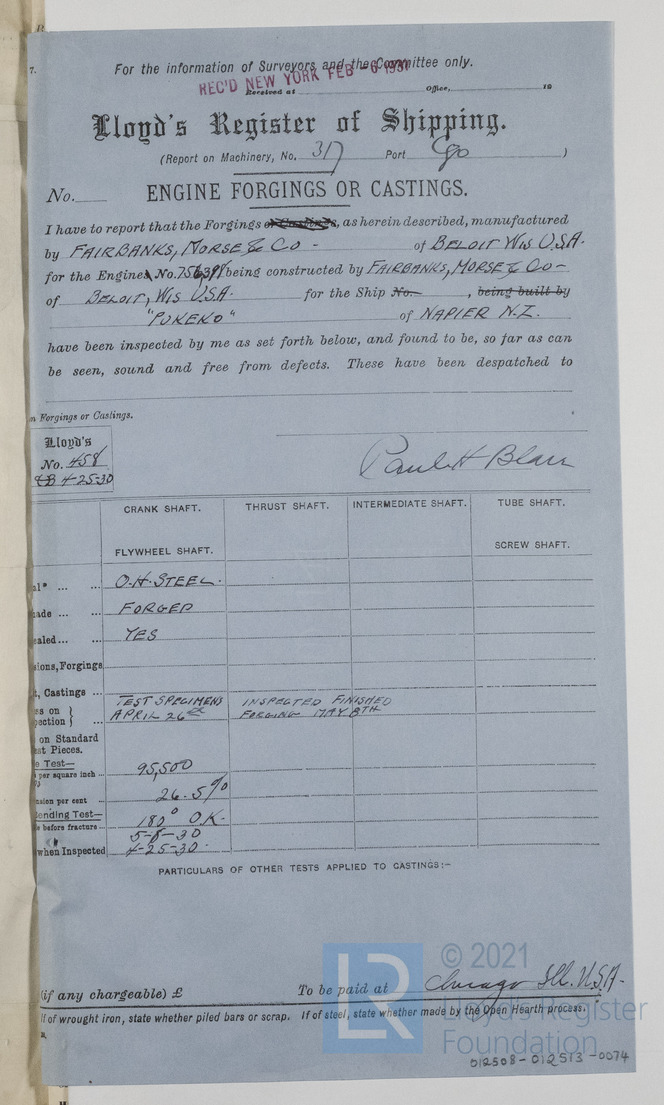 7.
For the information of Surveyors and the Committee only.
REC'D NEW YORK FEB -6 1931
Received at Office, 19
Lloyd's Register of Shipping.
(Report on Machinery, No. 317 Port Cgo )
No.
ENGINE FORGINGS OR CASTINGS.
I have to report that the Forgings or Castings, as herein described, manufactured
by FAIRBANKS, MORSE & CO - of BELOIT WIS U.S.A.
for the Engines No. being constructed by FAIRBANKS, MORSE & CO -
of BELOIT, WIS U.S.A. for the Ship No. , being built by
"PUKEKO" of NAPIER N.Z.
have been inspected by me as set forth below, and found to be, so far as can
be seen, sound and free from defects. These have been despatched to
on Forgings or Castings.
Lloyd's
No. 458
4-25-30
Paul H Blair
CRANK SHAFT. THRUST SHAFT. INTERMEDIATE SHAFT. TUBE SHAFT.
FLYWHEEL SHAFT. SCREW SHAFT.
al* ... ... O.H. STEEL.
ade ... ... FORGED
ealed ... ... YES
sions, Forgings
t, Castings ...
es on } TEST SPECIMENS INSPECTED FINISHED
pection } ... APRIL 26th FORGING MAY 8TH
on Standard
st Pieces.
e Test—
per square inch ... 95,500
nsion per cent ... 26.5%
Bending Test—
before fracture ... 180° OK.
5-8-30
when Inspected 4-25-30
PARTICULARS OF OTHER TESTS APPLIED TO CASTINGS:—
(if any chargeable) £ To be paid at Chicago Ill. U.S.A.
If of wrought iron, state whether piled bars or scrap. If of steel, state whether made by the Open Hearth process.
LR
© 2021
Lloyd's Register
Foundation
012508-012513-0074